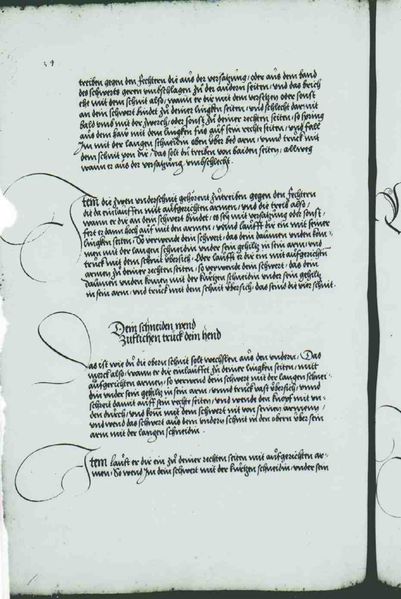 treiben gegen den fechtern die aus der versatzung oder aus dem band
des schwerts geren umbschlagen zu der andern seiten und das brich
also wann er dir mit dem versetzen oder sonst
an dem schwert bindt zu deiner lingken seiten und schlecht dar mit
bald umb mit der zwerch oder sonst zu deiner rechten seiten so spring
aus dem haw mit dem lingken fus auf sein rechte seiten und fall
im mit der langen schneidenn oben uber bed arm und truck mit
dem schnit von dir das solt du treiben von baiden seiten allweg
wann er aus der versatzung umbschlecht
Item die zwen underschnit gehorent zutreiben gegen den fechtern
die da einlauffen mit aufgerichten armen und die treib also
wann er dir an dem schwert bindet es sey mit versatzung oder sonst
fert er dann hoch auf mit den armen und laufft dir ein mit seiner
lingken seiten So verwend dein schwert das dein daumen unden kum
mit der langen schneiden under sein gehiltz in sein arm und
truck mit dem schnit ubersich Oder laufft er dir ein mit aufgerichten
armen zu deiner rechten seiten so verwend dein schwert das dein
daumen unden kome mit der kurtzen schneiden under sein gehiltz
in sein arm und truck mit dem schnit ubersich das send die vier schnit
Dein schneiden wend
Zuflechen truck dem hend
Das ist wie du die obern schnit solt wechslen aus den undern Das
merck also wann er dir einlauffet zu deiner lingken seiten mit
aufgerichten armen so verwend dein schwert mit der langen schnei
den under sein gehiltz in sein arm und truck vast ubersich und
schreit damit auff sein rechte seiten und wend den knopf mit un
den durch und kom mit dem schwert nit von seinen armenn
und wend das schwert aus dem undern schnit in den obern uber sein
arm mit der langen schneidn
Item laufft er dir ein zu deiner rechten seiten mit aufgerichten ar
men So wend im dein schwert mit der kurtzen schneidin under sein